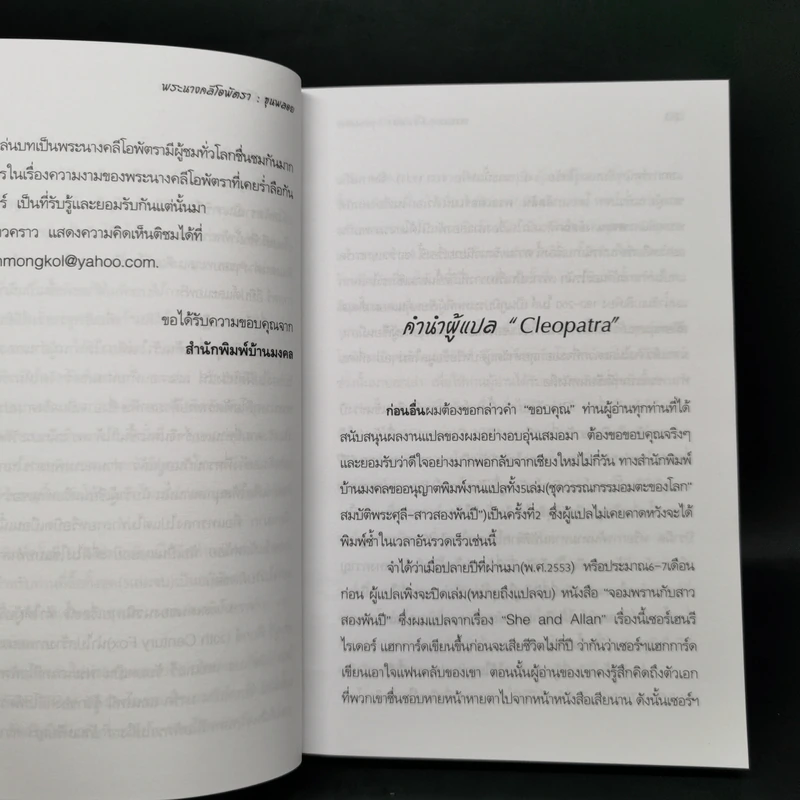 พระนางคลีโอพัตรา : ขุนพลอย
ล่นบทเป็นพระนางคลีโอพัตรามีผู้ชมทั่วโลกชื่นชมกันมาก
รในเรื่องความงามของพระนางคลีโอพัตราที่เคยร่ำลือกัน
ร์ เป็นที่รับรู้และยอมรับกันแต่นั้นมา
วคราว แสดงความคิดเห็นติชมได้ที่
nmongkol@yahoo.com.
ขอได้รับความขอบคุณจาก
สำนักพิมพ์บ้านมงคล
คำนำผู้แปล “ Cleopatra”
ก่อนอื่นผมต้องขอกล่าวคำ “ขอบคุณ” ท่านผู้อ่านทุกท่านที่ได้
สนับสนุนผลงานแปลของผมอย่างอบอุ่นเสมอมา ต้องขอขอบคุณจริงๆ
และยอมรับว่าดีใจอย่างมากพอกลับจากเชียงใหม่ไม่กี่วัน ทางสำนักพิมพ์
บ้านมงคลขออนุญาตพิมพ์งานแปลทั้ง5เล่ม(ชุดวรรณกรรมอมตะของโลก”
สมบัติพระศุลี-สาวสองพันปี”)เป็นครั้งที่2 ซึ่งผู้แปลไม่เคยคาดหวังจะได้
พิมพ์ซ้ำในเวลาอันรวดเร็วเช่นนี้
จำได้ว่าเมื่อปลายปีที่ผ่านมา(พ.ศ.2553) หรือประมาณ6-7เดือน
ก่อน ผู้แปลเพิ่งจะปิดเล่ม(หมายถึงแปลจบ) หนังสือ “จอมพรานกับสาว
สองพันปี” ซึ่งผมแปลจากเรื่อง “She and Allan” เรื่องนี้เซอร์เฮนรี
ไรเดอร์ แฮกการ์ดเขียนขึ้นก่อนจะเสียชีวิตไม่กี่ปี ว่ากันว่าเซอร์ฯแฮกการ์ด
เขียนเอาใจแฟนคลับของเขา ตอนนั้นผู้อ่านของเขาคงรู้สึกคิดถึงตัวเอก
ที่พวกเขาชื่นชอบหายหน้าหายตาไปจากหน้าหนังสือเสียนาน ดังนั้นเซอร์ฯ